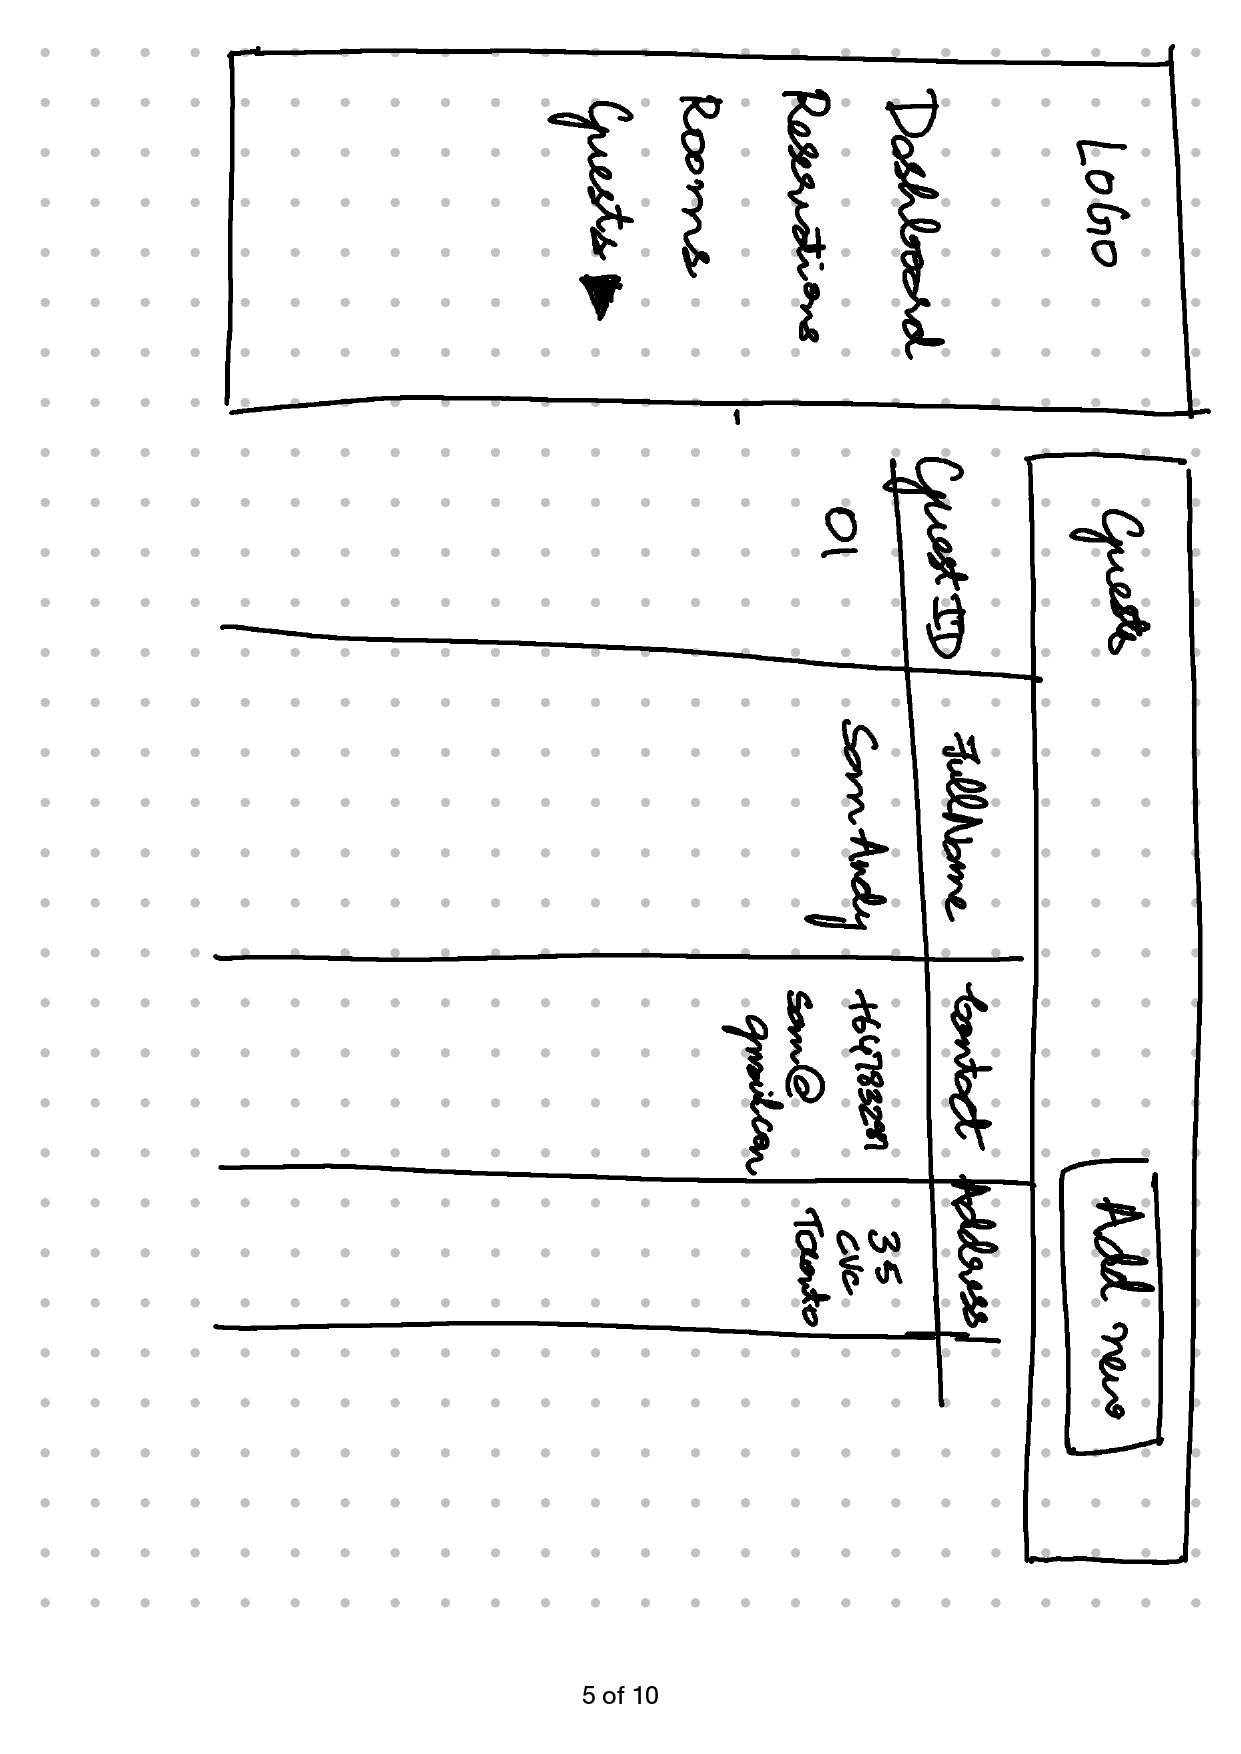 LOGO
Dashboard
Reservations
Rooms
Guests
Guests
Add new
Guest ID
Full Name
Contact
Address
01
Sam Andy
+64783287
sam@
gmail.com
35
CVC
Toronto
5 of 10